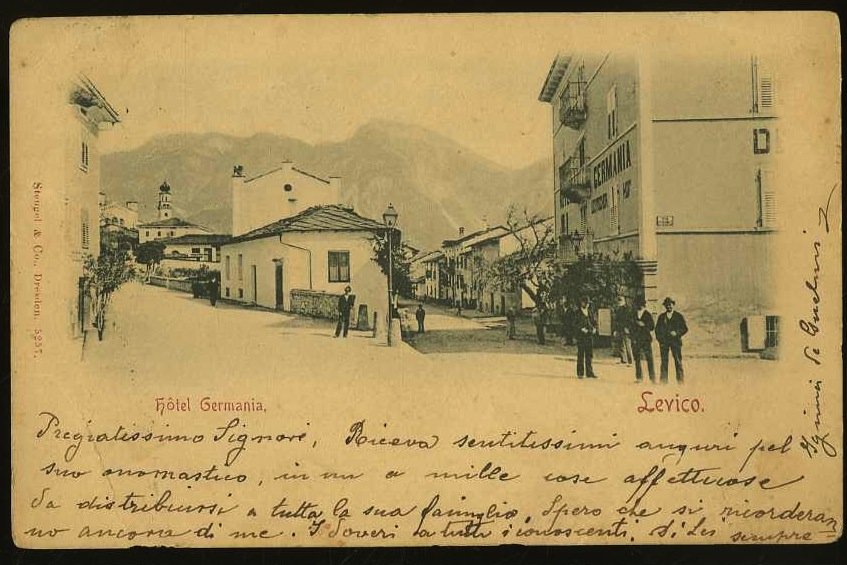 GERMANIA
D
Stengel & Co., Dresden. 5257.
Hôtel Germania,
Levico.
Pregiatissimo Signore, Riceva sentitissimi auguri pel
suo onomastico, in un a mille cose affettuose
da distribuirsi a tutta la sua famiglia. Spero che si ricorderan
no ancora di me. I doveri a tutti i conoscenti. Di Lei sempre